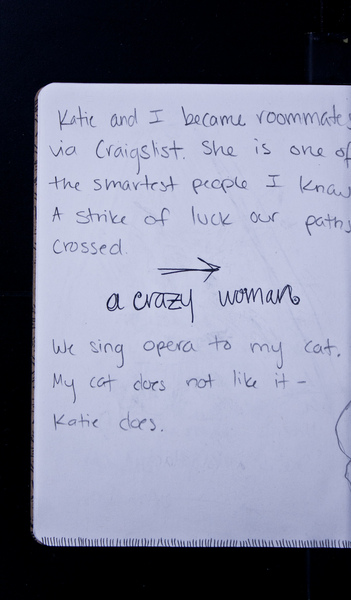 Katie and I became roommates
via Craigslist. She is one of
the smartest people I know
A strike of luck our paths
crossed.
a crazy woman
We sing opera to my cat.
My cat does not like it –
Katie does.